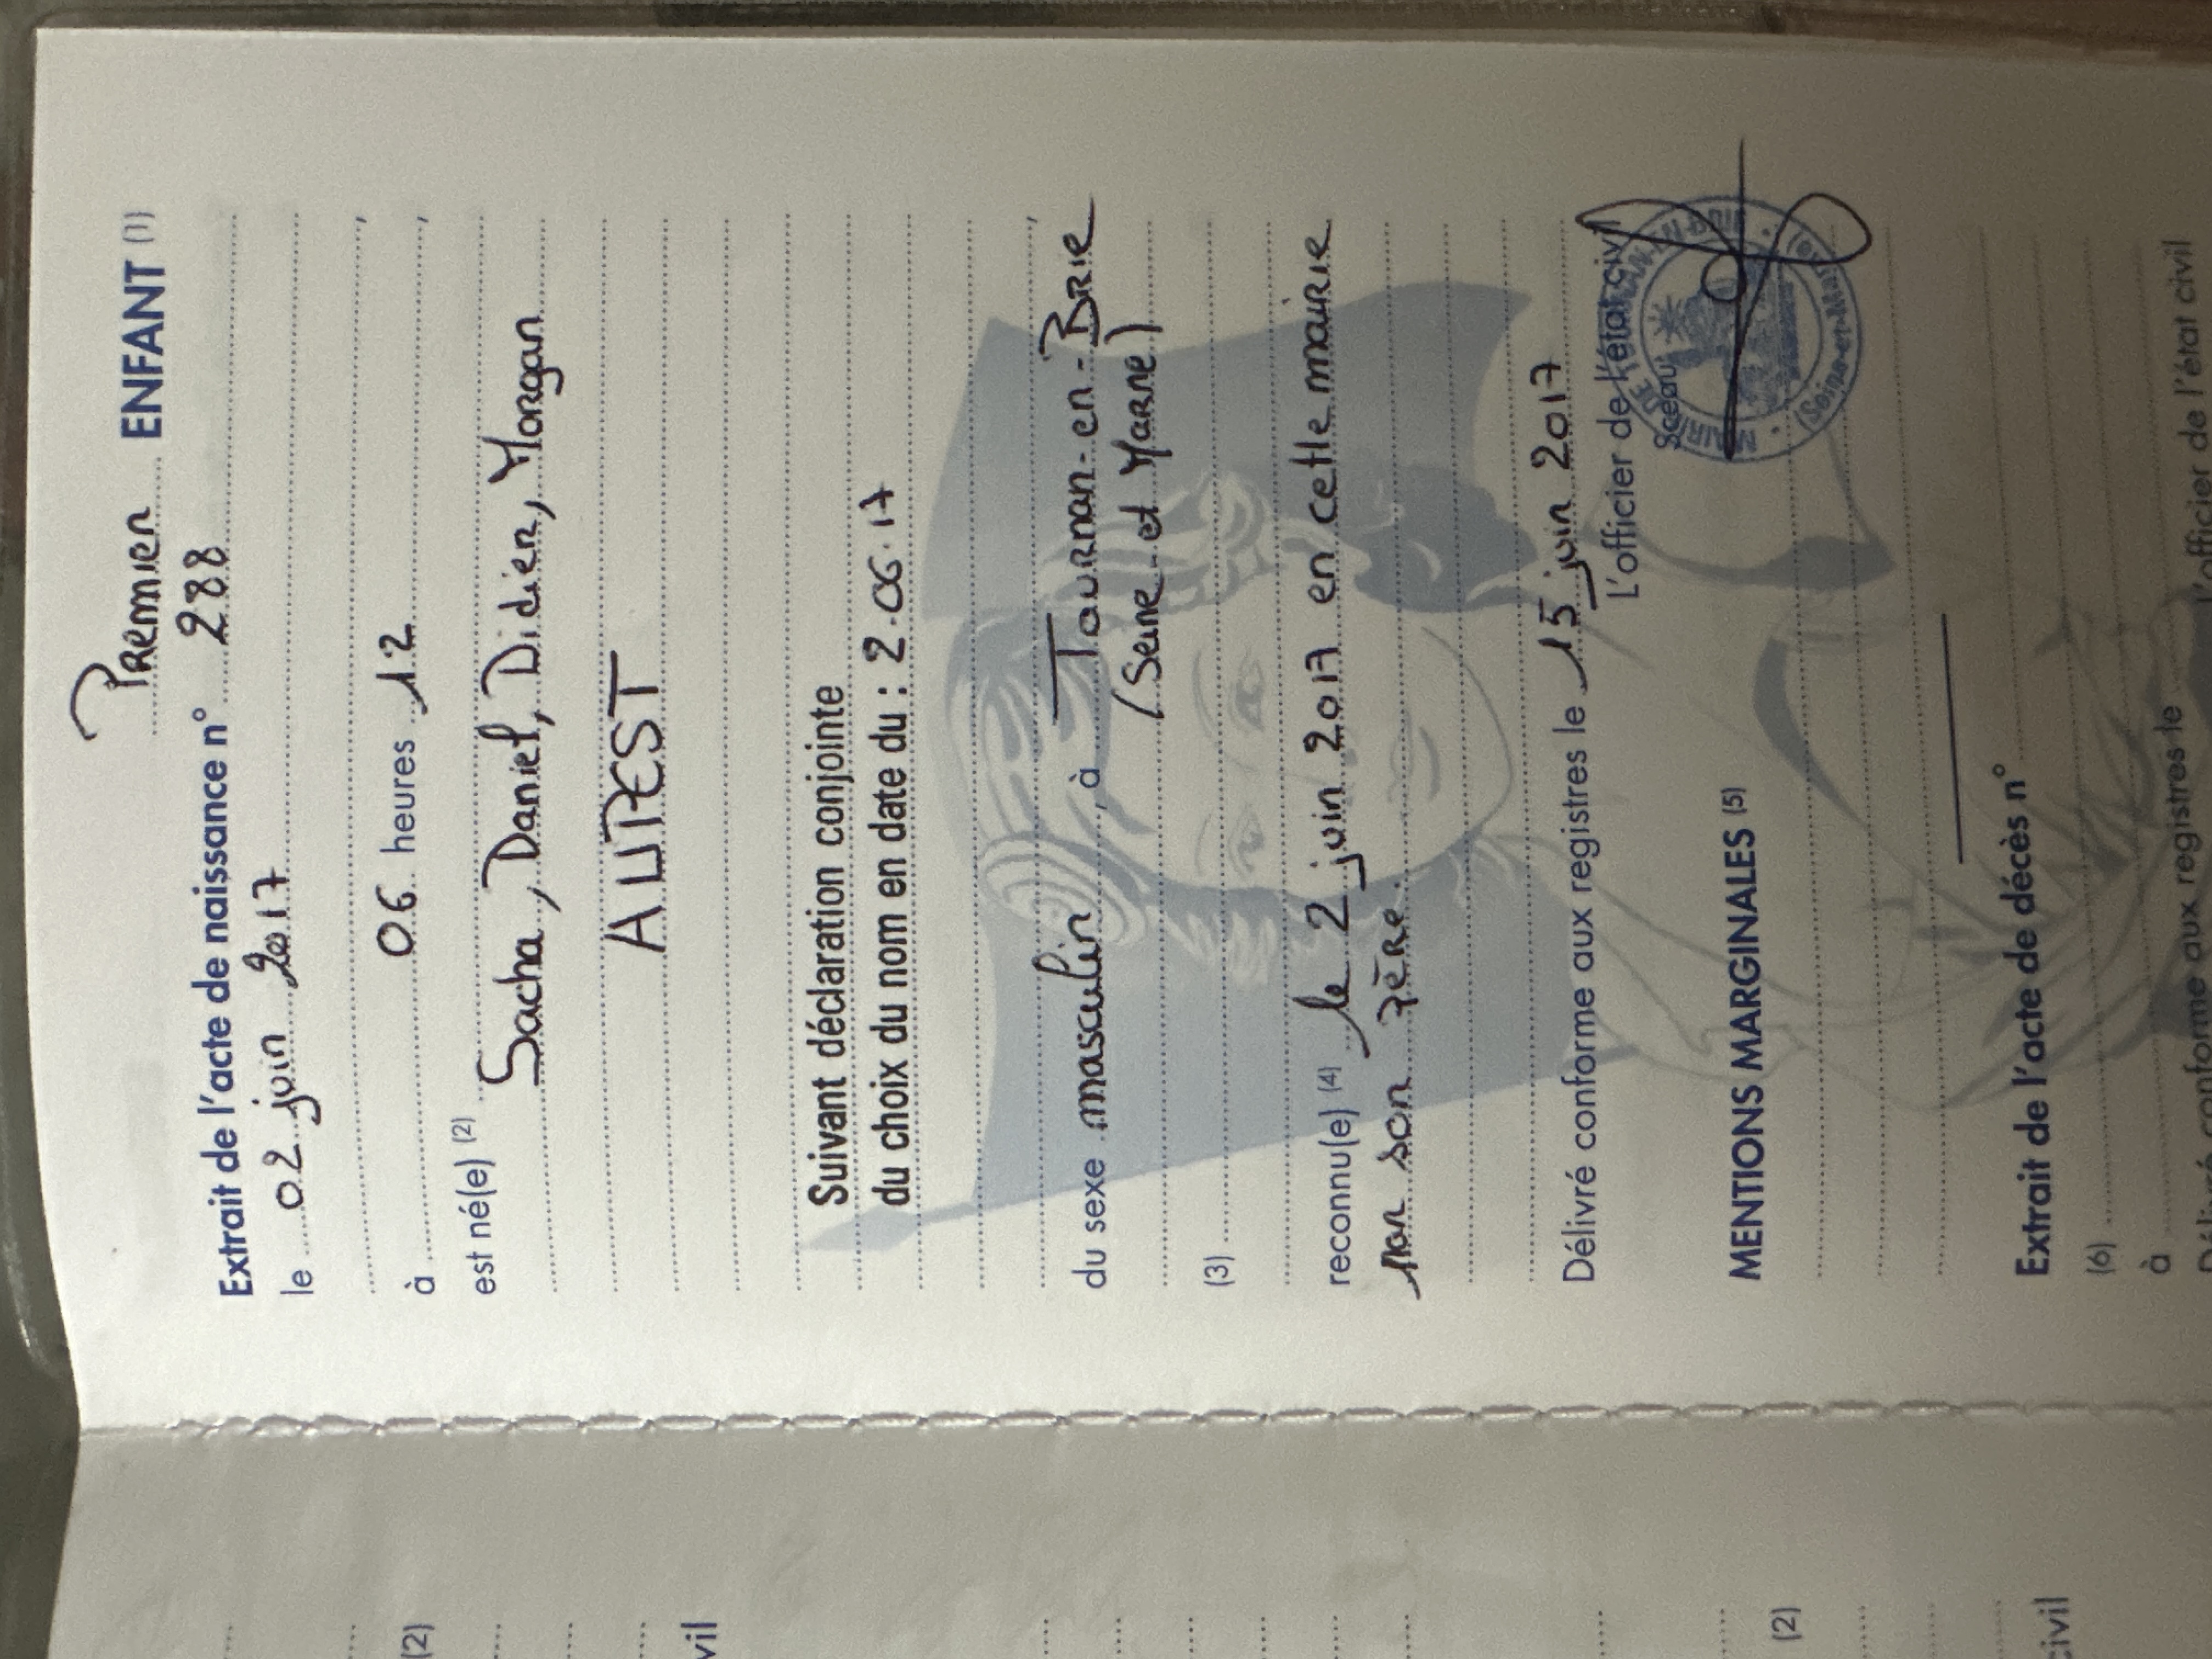 Premier ENFANT (1)
Extrait de l'acte de naissance n° 288
le 02 juin 2017
à 06 heures 12,
est né(e) (2)
Sacha, Daniel, Didier, Morgan
AUPEST
Suivant déclaration conjointe
du choix du nom en date du : 2.06.17
du sexe masculin, à Tournan-en-Brie,
(Seine et Marne)
(3)
reconnu(e) (4) le 2 juin 2017 en cette mairie
par son père.
Délivré conforme aux registres le 15 juin 2017
L'officier de l'état civil
Sceau
MAIRIE DE TOURNAN-EN-BRIE
(Seine-et-Marne)
MENTIONS MARGINALES (5)
Extrait de l'acte de décès n°
(6)
à
Délivré conforme aux registres le
L'officier de l'état civil
(2)
vil
(2)
civil